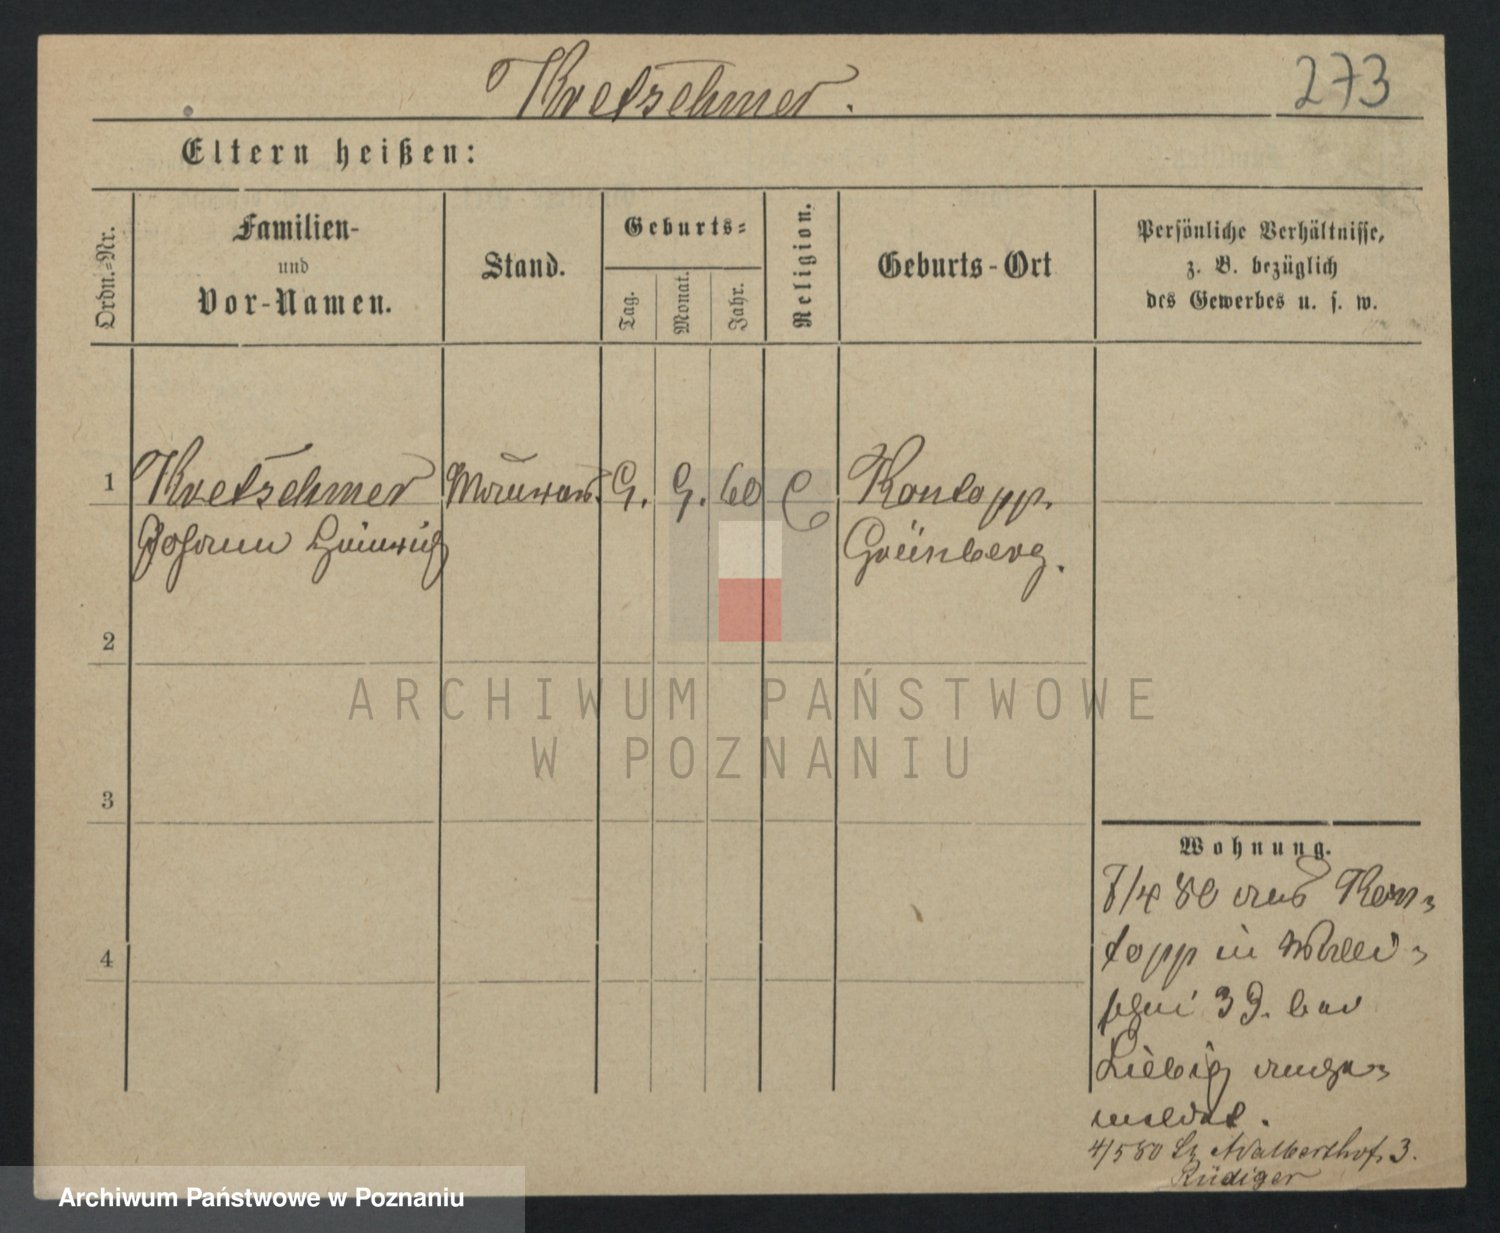 Kretschmer.
273
Eltern heißen:
Ordn.-Nr.
Familien-
und
Vor-Namen.
Stand.
Geburts-
Tag.
Monat.
Jahr.
Religion.
Geburts-Ort
Persönliche Verhältnisse,
z. B. bezüglich
des Gewerbes u. s. w.
1
Kretschmer
Johann Heinrich
9. 9. 60
Kontopp.
Grünberg.
2
3
4
Wohnung.
7/4 80 aus Kon-
topp in Walli-
schei 39. bei
Liebig ange-
meldet.
4/5 80 Adalberthof 3.
Rüdiger
ARCHIWUM PAŃSTWOWE
W POZNANIU
Archiwum Państwowe w Poznaniu